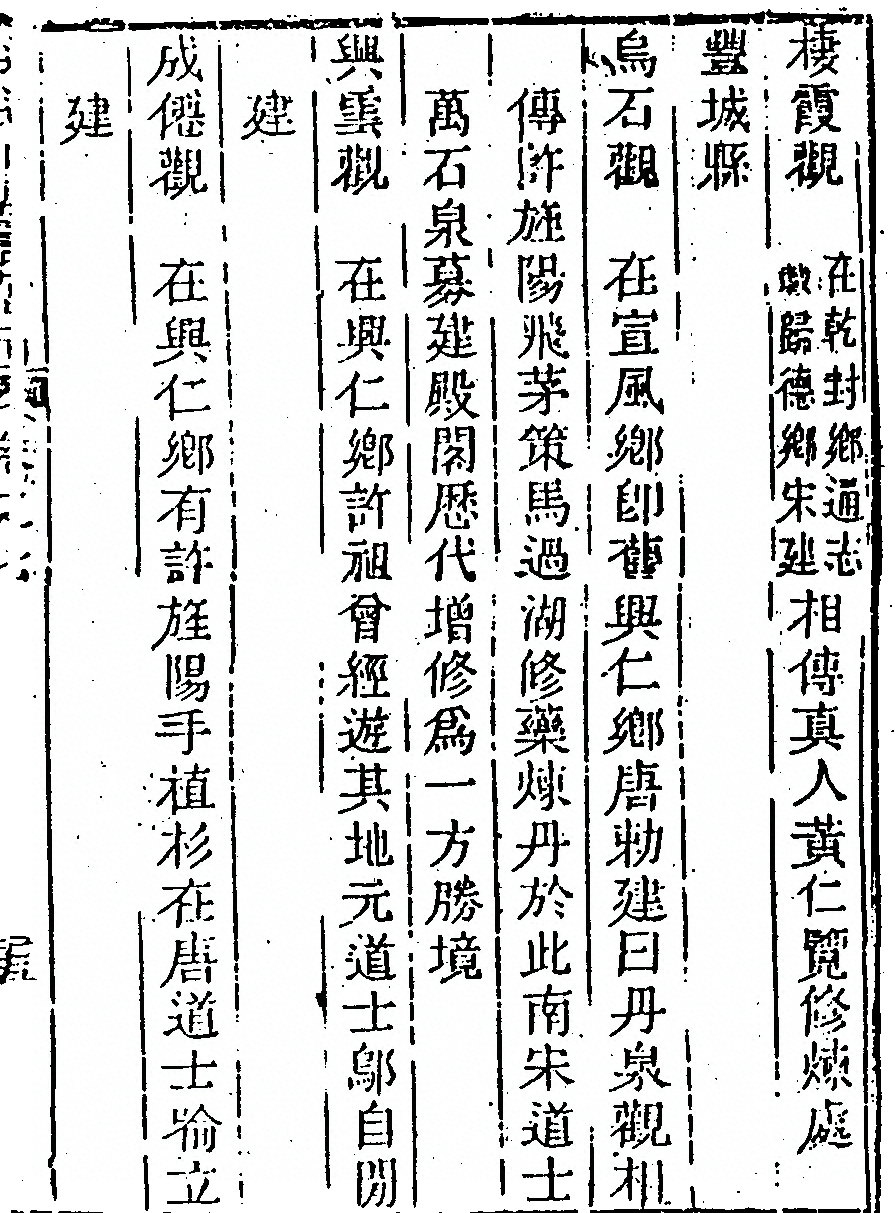 棲霞觀 在乾封鄉通志載歸德鄉宋建相傳真人黃仁覽修煉處
豐城縣
烏石觀 在宣風鄉即舊興仁鄉唐勅建曰丹泉觀相
傳許旌陽飛茅策馬過湖修藥煉丹於此南宋道士
萬石泉募建殿閣歷代增修爲一方勝境
興雲觀 在興仁鄉許祖曾經遊其地元道士鄔自閒
建
成僊觀 在興仁鄉有許旌陽手植杉在唐道士喻立
建